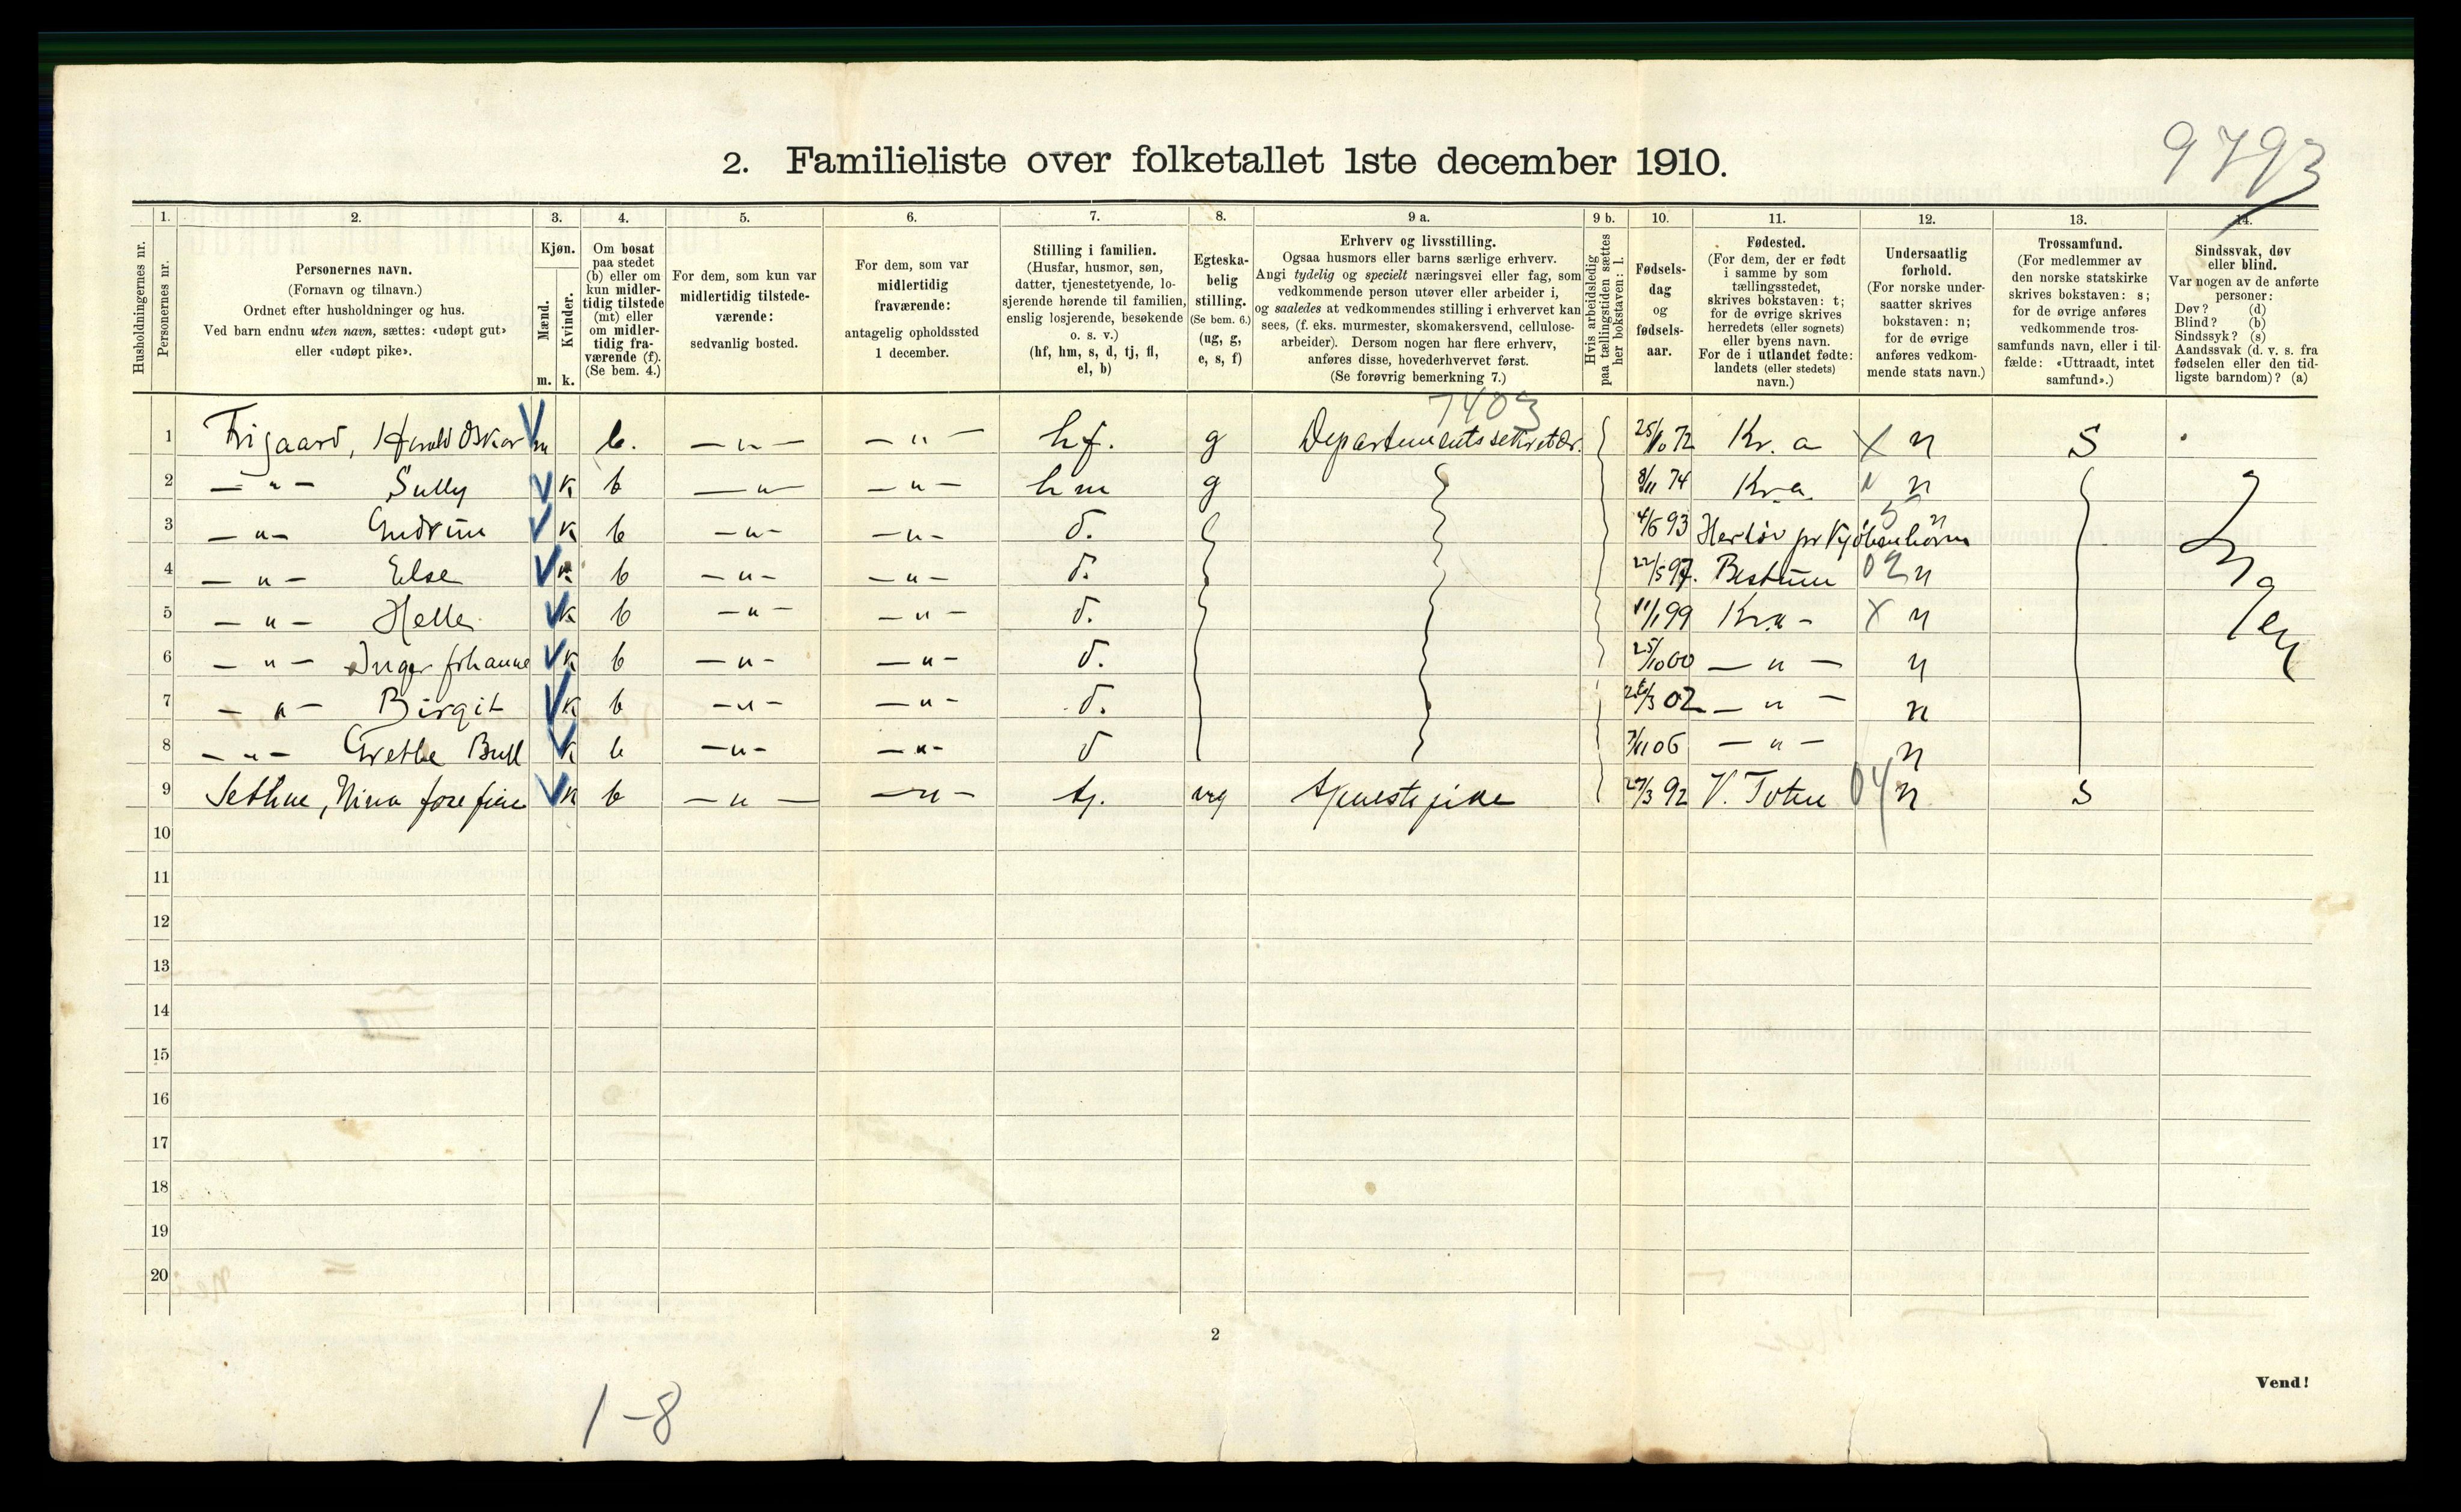 2. Familieliste over folketallet 1ste december 1910.
9793
Husholdningernes nr.
1. Personernes nr.
2. Personernes navn.
(Fornavn og tilnavn.)
Ordnet efter husholdninger og hus.
Ved barn endnu uten navn, sættes: «udøpt gut»
eller «udøpt pike».
3. Kjøn.
Mænd. m.
Kvinder. k.
4. Om bosat
paa stedet
(b) eller om
kun midler-
tidig tilstede
(mt) eller
om midler-
tidig fra-
værende (f).
(Se bem. 4.)
5. For dem, som kun var
midlertidig tilstede-
værende:
sedvanlig bosted.
6. For dem, som var
midlertidig
fraværende:
antagelig opholdssted
1 december.
7. Stilling i familien.
(Husfar, husmor, søn,
datter, tjenestetyende, lo-
sjerende hørende til familien,
enslig losjerende, besøkende
o. s. v.)
(hf, hm, s, d, tj, fl,
el, b)
8. Egteska-
belig
stilling.
(Se bem. 6.)
(ug, g,
e, s, f)
9 a. Erhverv og livsstilling.
Ogsaa husmors eller barns særlige erhverv.
Angi tydelig og specielt næringsvei eller fag, som
vedkommende person utøver eller arbeider i,
og saaledes at vedkommendes stilling i erhvervet kan
sees, (f. eks. murmester, skomakersvend, cellulose-
arbeider). Dersom nogen har flere erhverv,
anføres disse, hovederhvervet først.
(Se forøvrig bemerkning 7.)
9 b. Hvis arbeidsledig
paa tællingstiden sættes
her bokstaven: l.
10. Fødsels-
dag
og
fødsels-
aar.
11. Fødested.
(For dem, der er født
i samme by som
tællingsstedet,
skrives bokstaven: t;
for de øvrige skrives
herredets (eller sognets)
eller byens navn.
For de i utlandet fødte:
landets (eller stedets)
navn.)
12. Undersaatlig
forhold.
(For norske under-
saatter skrives
bokstaven: n;
for de øvrige
anføres vedkom-
mende stats navn.)
13. Trossamfund.
(For medlemmer av
den norske statskirke
skrives bokstaven: s;
for de øvrige anføres
vedkommende tros-
samfunds navn, eller i til-
fælde: «Uttraadt, intet
samfund».)
14. Sindssvak, døv
eller blind.
Var nogen av de anførte
personer:
Døv? (d)
Blind? (b)
Sindssyk? (s)
Aandssvak (d. v. s. fra
fødselen eller den tid-
ligste barndom)? (a)
7403
1 Frigaard, Harald Oskar m b. — " — — " — hf. g Departementssekretær 25/10 72 Kr.a X n S
2 — " — Sully k b — " — — " — hm g 8/11 74 Kr.a. n
3 — " — Gudrun k b — " — — " — d. 4/6 93 Herløv pr Kjøbenhavn 5 n
4 — " — Else k b — " — — " — d. 22/5 97. Bestum 02 n
5 — " — Helle k b — " — — " — d. 11/1 99 Kr.a - X n
6 — " — Inger Johanne k b — " — — " — d. 25/10 00 — " — n
7 — " — Birgit k b — " — — " — d. 26/3 02 — " — n
8 — " — Grethe Bull k b — " — — " — d 7/11 06 — " — n
Ingen
9 Sethne, Nina Josefine k b — " — — " — tj. ug tjenestepike 27/3 92 V. Toten 04 n S
10
11
12
13
14
15
16
17
18
19
20
2
Vend!
1-8